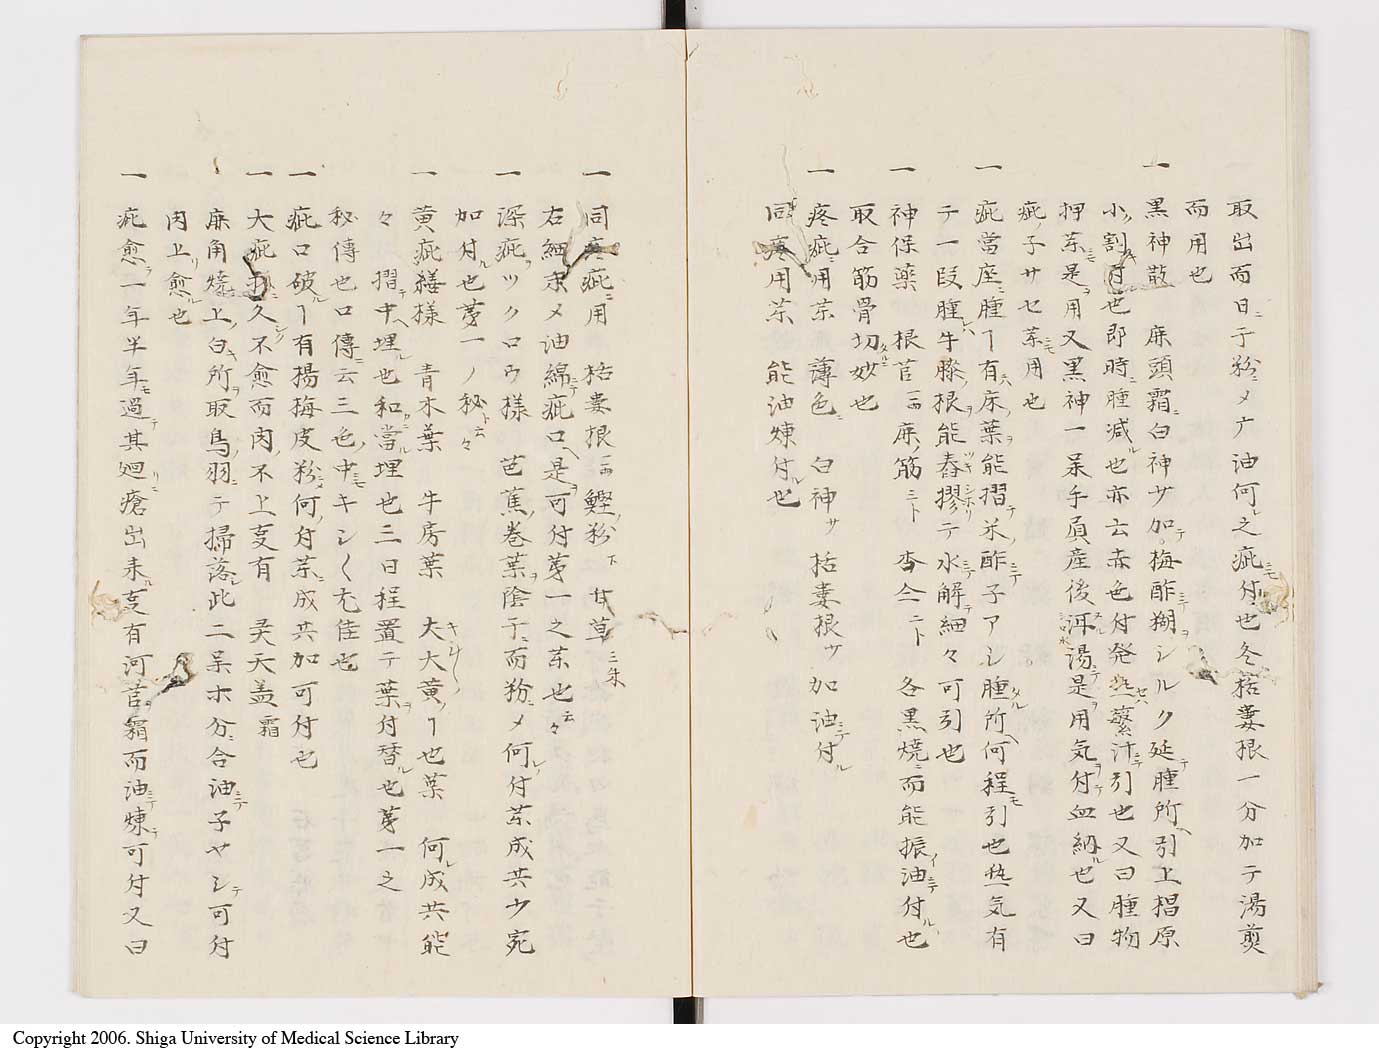 取出而日ニ于粉ニメ广油何レ之疵ニモ付ル也冬栝蔞根一分加テ湯煎
而用也
一 黒神散 麻頭霜ニ白神サ加テ梅酢ニテ糊ヲシルク延テ腫所ヘ引上椙原
小ク割付也即時ニ腫减ル也亦云赤色付発熱セハ藁汁ニテ引也又曰腫物
押ニモ茶是ヲ用又黒神一呆手負産後洱湯ニテ是ヲ用気ヲ付テ血納ル也又曰
疵ノ子サセニモ茶用也
一 疵當座ニ腫ヿ有ハ床ノ葉ヲ能摺テ米ノ酢ニテ子アシ腫タル所ヘ何程モ引也热気有
テ一段腫レハ牛膝ノ根ヲ能舂摎テ水ニテ解テ細々可引也
一 神保薬 根苣 麻ノ筋 三ト 各黒焼ニ而能振油イニテ付ル也
取合筋骨切タルニ妙也
一 疼疵ニ用茶 薄色ニ 白神サ 栝蔞根サ 加油ニテ付ル
一 同疼用茶 能油煉付ル也
一 同疼疵ニ用 栝蔞根 鰹ノ粉下 甘草三朱
右細末メ油綿ニテ疵口ヘ是ヲ可付第一之茶也云々
一 深疵ヲツクロウ様 芭蕉ノ巻葉ヲ陰于ニ而粉ニメ何レノ付茶成共少宛
加付ル也第一ノ秘ト云々
一 黄疵繕様 青木葉 牛房葉 大大黄ノヿ也葉 何レ成共能
々摺テ中ヘ埋レ也和カニ當ル埋也三日程置テ葉ヲ付替ル也第一之
秘傳也口傳ニ云三色ノ中ニモキシ〱尤佳也
一 疵口破ルヿ有楊梅皮粉ニメ何ノ付茶ニ成共加可付也
一 大疵ニ久シク不愈而肉ノ不上叓有 灵天盖霜
麻角焼上ノ白キ所ヲ取鳥ノ羽ニテ掃落シ此二呆ホ分ニ合油ニテ子ヤシテ可付
肉上リ愈ル也
一 疵愈テ一年半年モ過テ其廻リニ瘡出来ル叓有河苣ヲ霜而油ニテ煉テ可付又曰
Copyright 2006. Shiga University of Medical Science Library